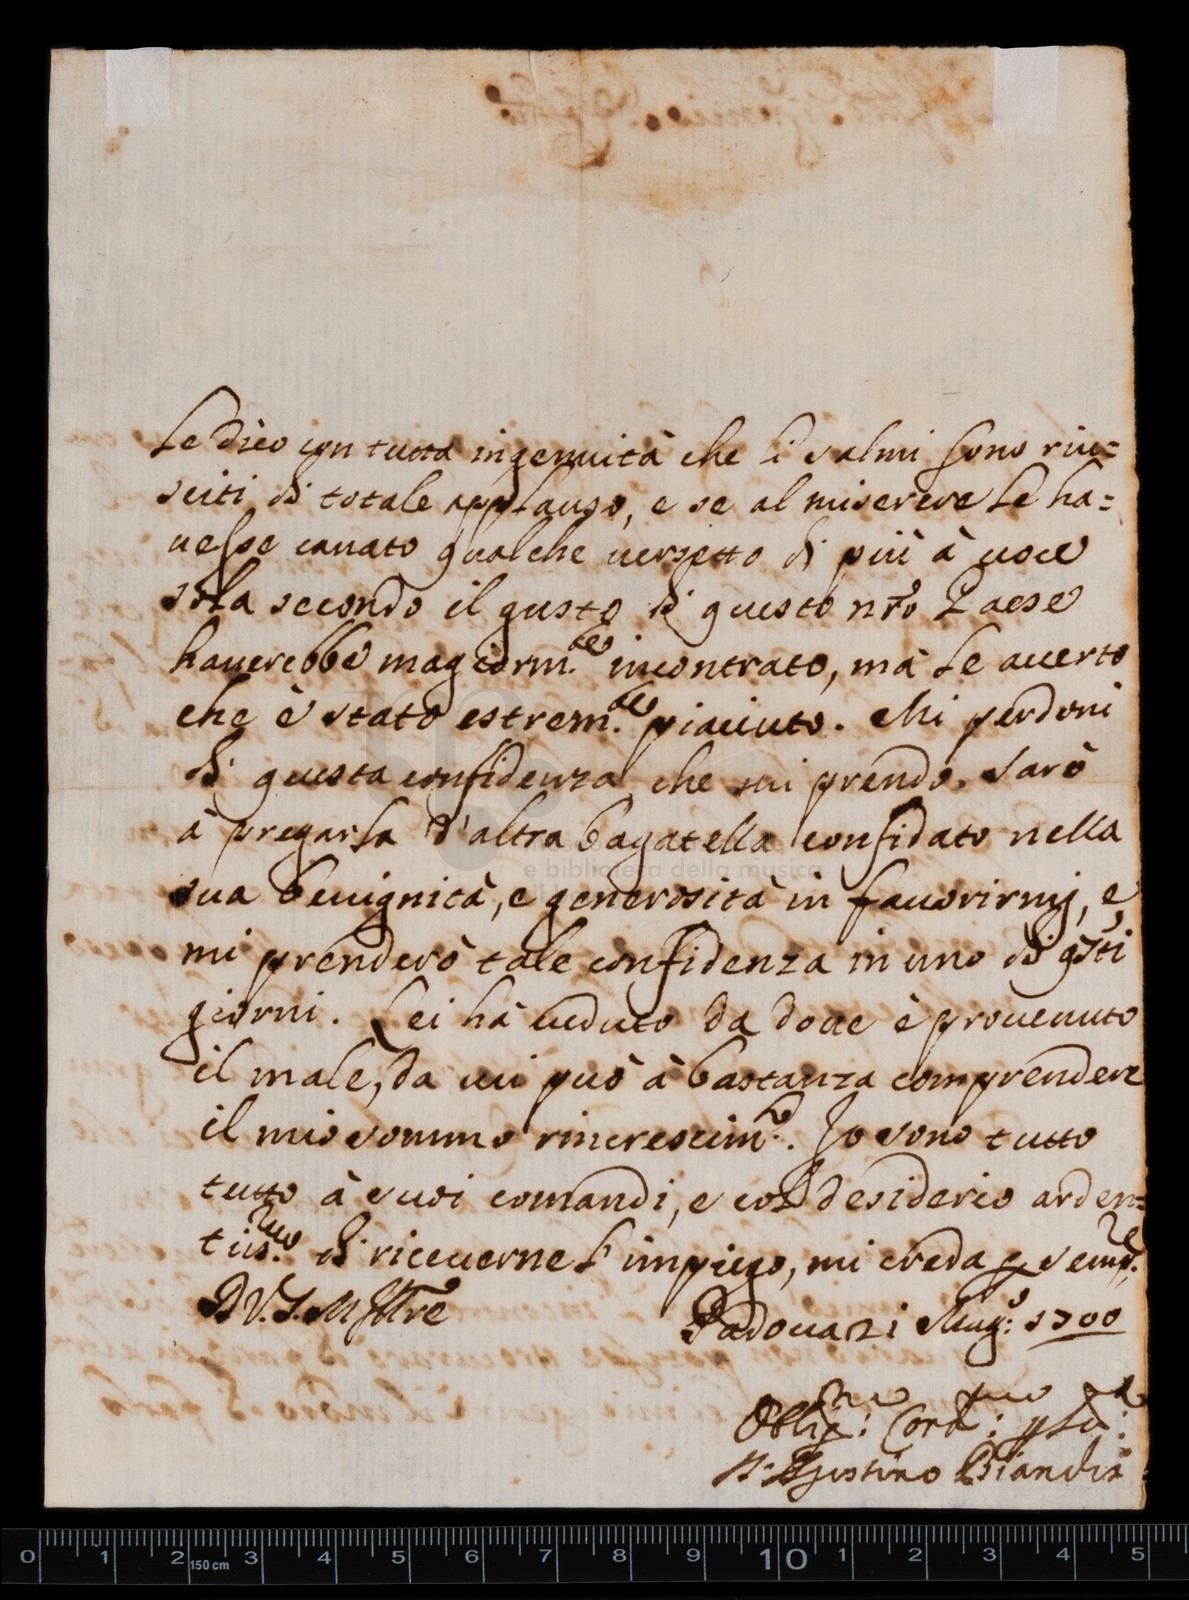 Le dico con tutta ingenuità che li salmi sono riu=
sciti di totale applauso, e se al miserere le ha=
uesse cauato qualche uersetto di più à uoce
sola secondo il gusto di questo nrõ Paese
hauerebbe magiorm.te incontrato, mà le accerto
che è stato estrem.te piaciuto. Mi perdoni
di questa confidenza che mi prendo. Sarò
à pregarla d'altra bagatella confidato nella
sua benignità, e generosità in fauorirmj, e
mi prenderò tale confidenza in uno di q̃sti
giorni. Lei hà ueduto da doue è prouenuto
il male, da cui può à bastanza comprendere
il mio sommo rincrescim.to. Io sono tutto
tutto à suoi comandi, e col desiderio arden=
tiss.mo di riceuerne l'impiego, mi creda p semp.re
D V. S. M Illre
Padoua 21 Mag.o 1700
Oblig.mo Cord.mo
F. Agostino Bianchi
e biblioteca della musica
0 1 2 150 cm 3 4 5 6 7 8 9 10 1 2 3 4 5